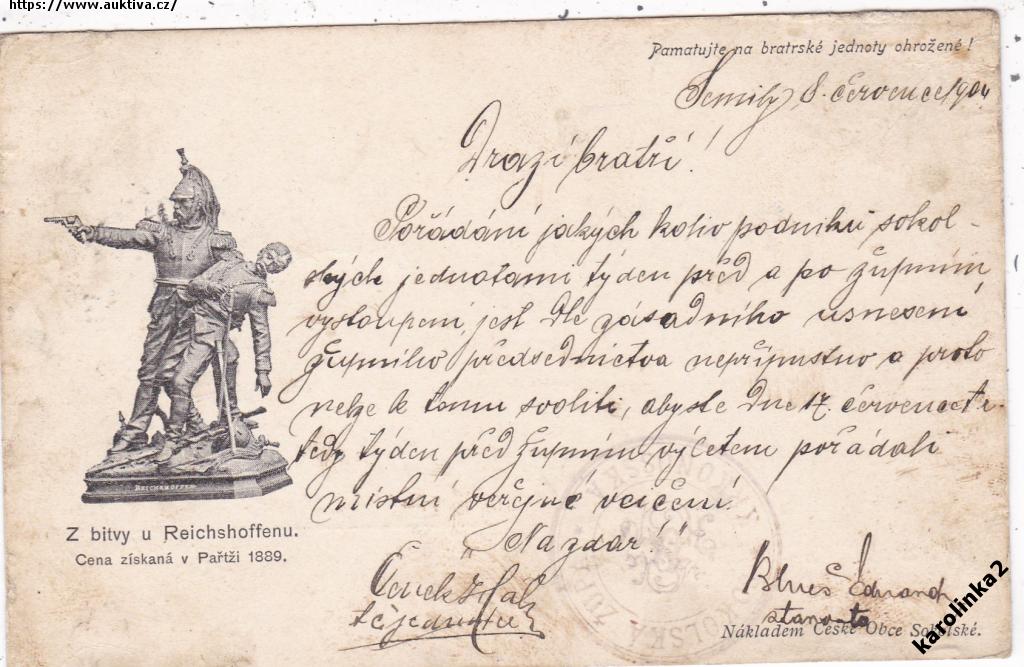 https://www.auktiva.cz/
Pamatujte na bratrské jednoty ohrožené!
Semily 8. července 1904
Drazí bratří!
Pořádání jakých koliv podniků sokol-
ských jednotami týden před a po župním
vystoupení, jest dle zásadního usnesení
župního předsednictva nepřípustno a proto
nelze k tomu svoliti, abyste dne 17. července t.r.
tedy týden před župním výletem pořádali
místní veřejné cvičení.
"Na zdar!"
REICHSHOFFEN
Z bitvy u Reichshoffenu.
Cena získaná v Paříži 1889.
Čeněk
Eduard
starosta
Nákladem České Obce Sokolské.
karolinka2